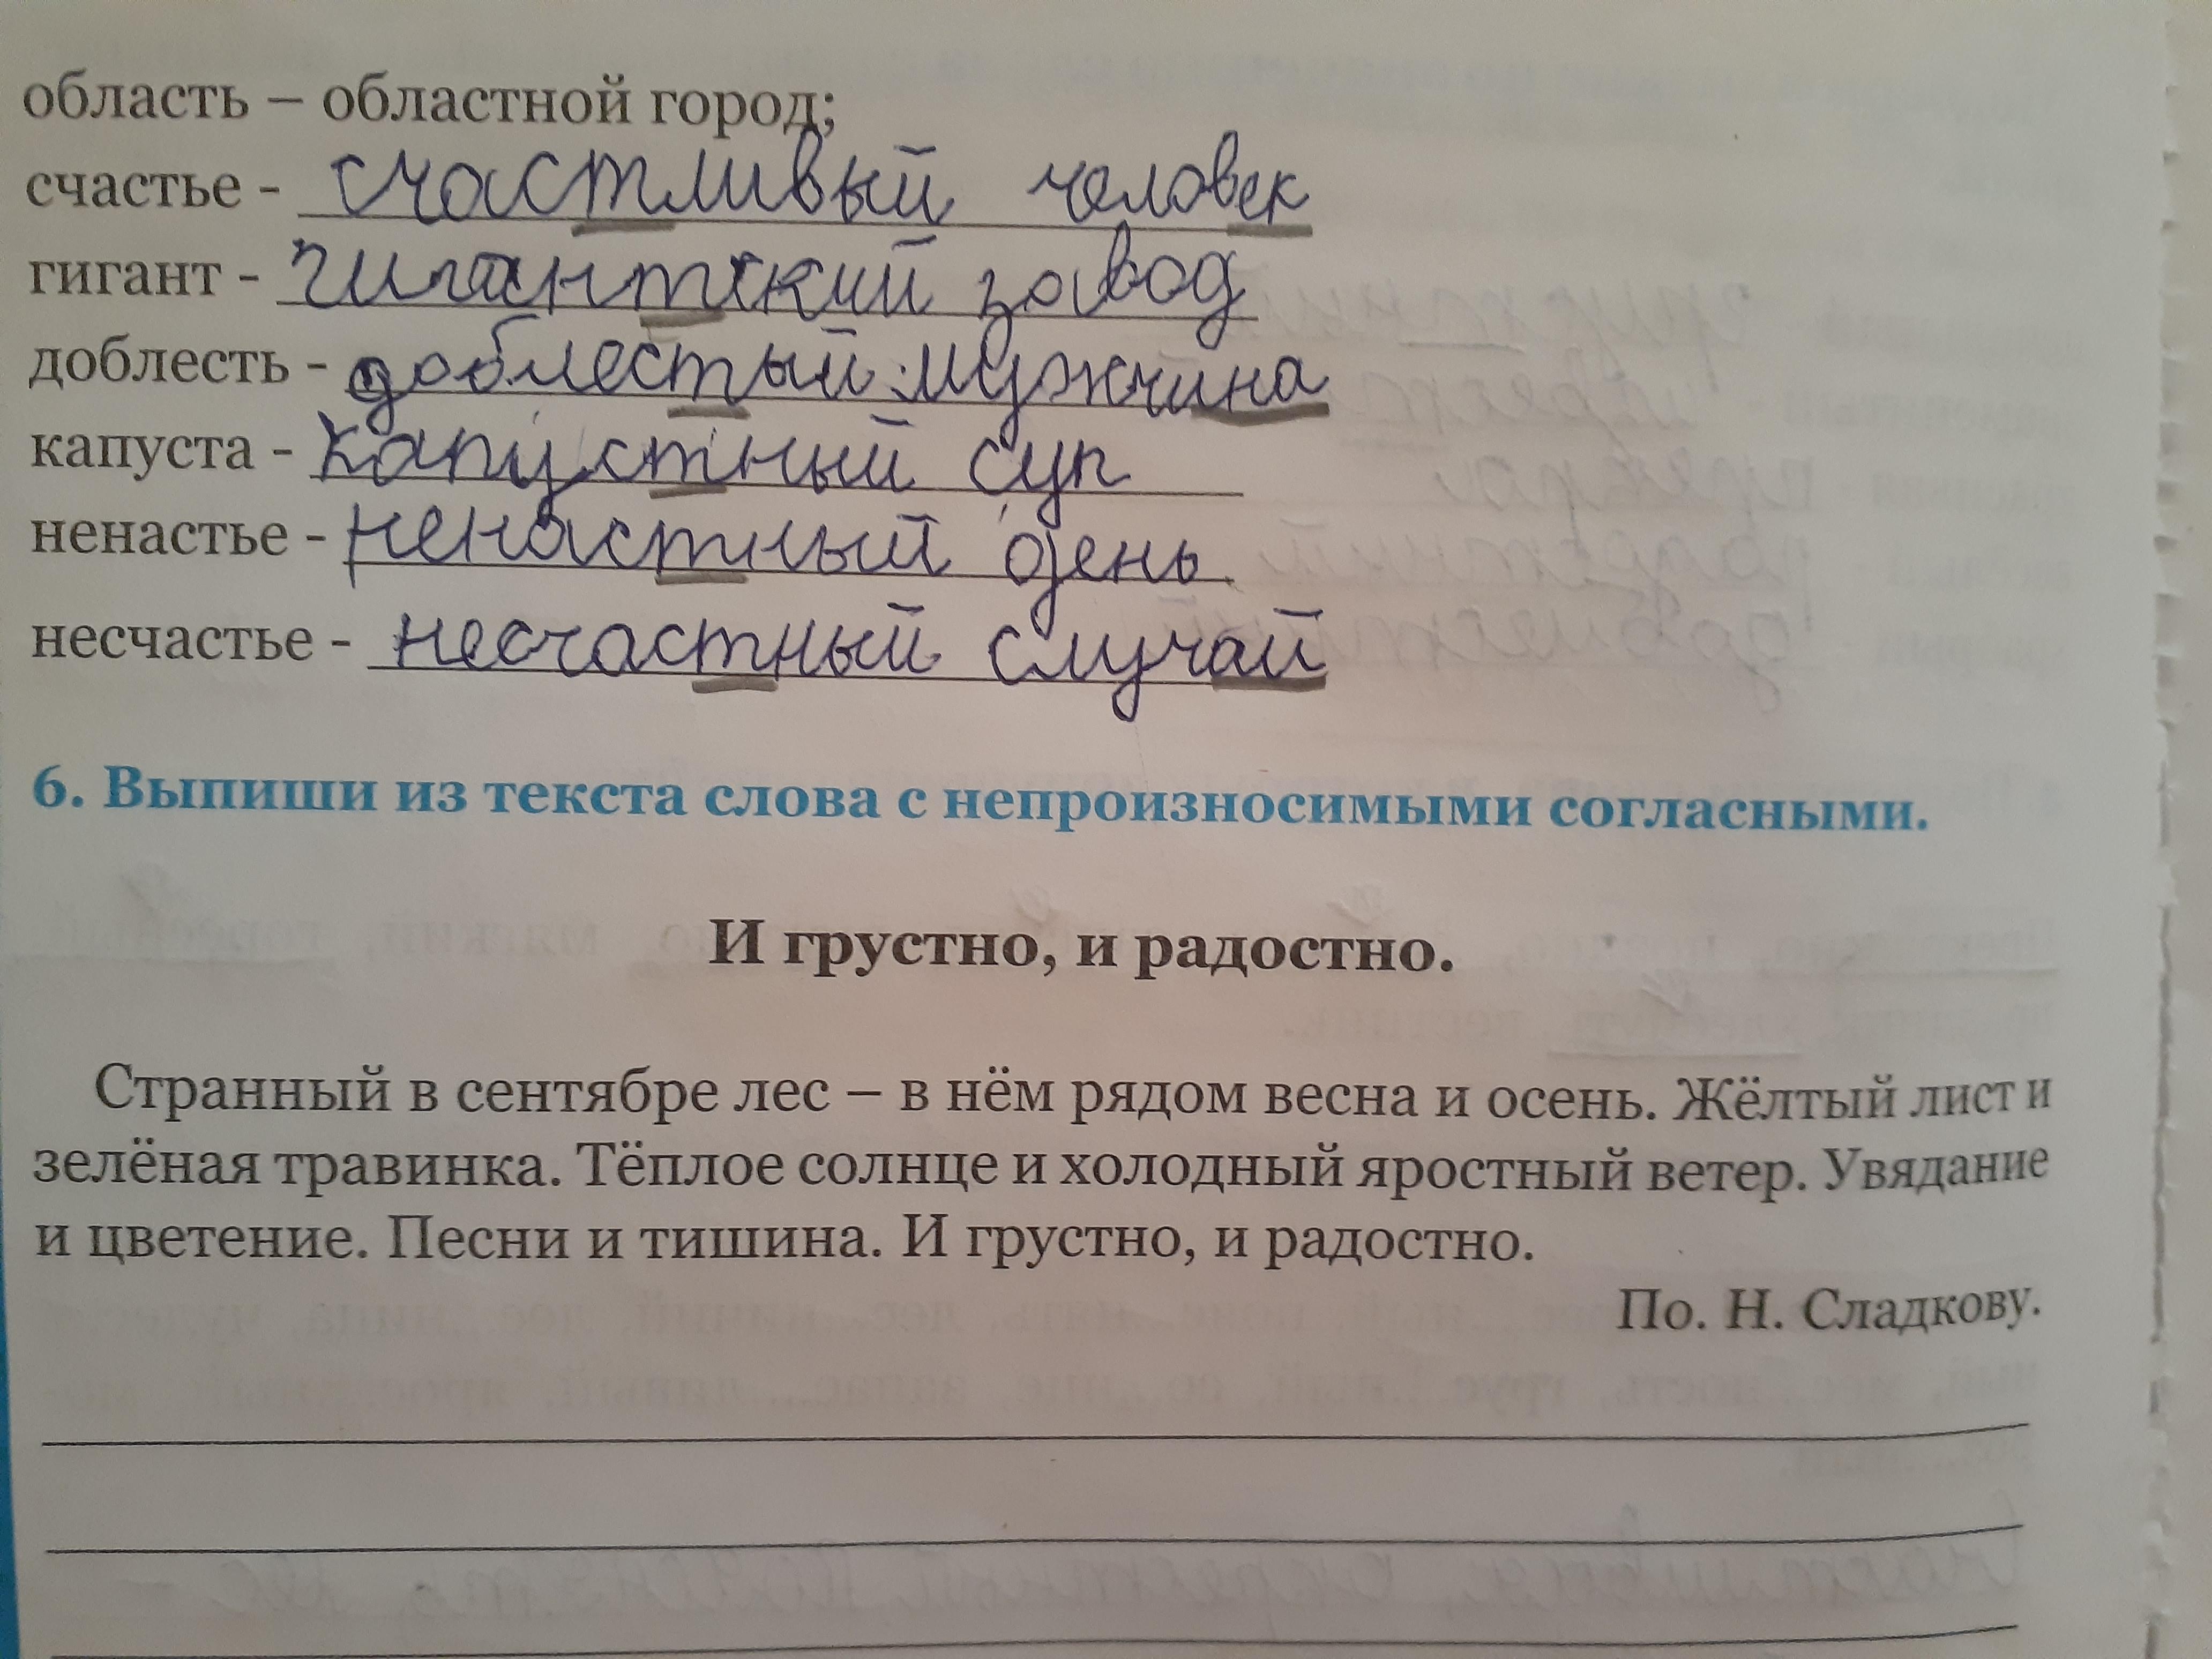 область – областной город;
счастье - счастливый человек
гигант - гигантский завод
доблесть - доблестый мужчина
капуста - капустный суп
ненастье - ненастный день
несчастье - несчастный случай
6. Выпиши из текста слова с непроизносимыми согласными.
И грустно, и радостно.
Странный в сентябре лес – в нём рядом весна и осень. Жёлтый лист и
зелёная травинка. Тёплое солнце и холодный яростный ветер. Увядание
и цветение. Песни и тишина. И грустно, и радостно.
По. Н. Сладкову.